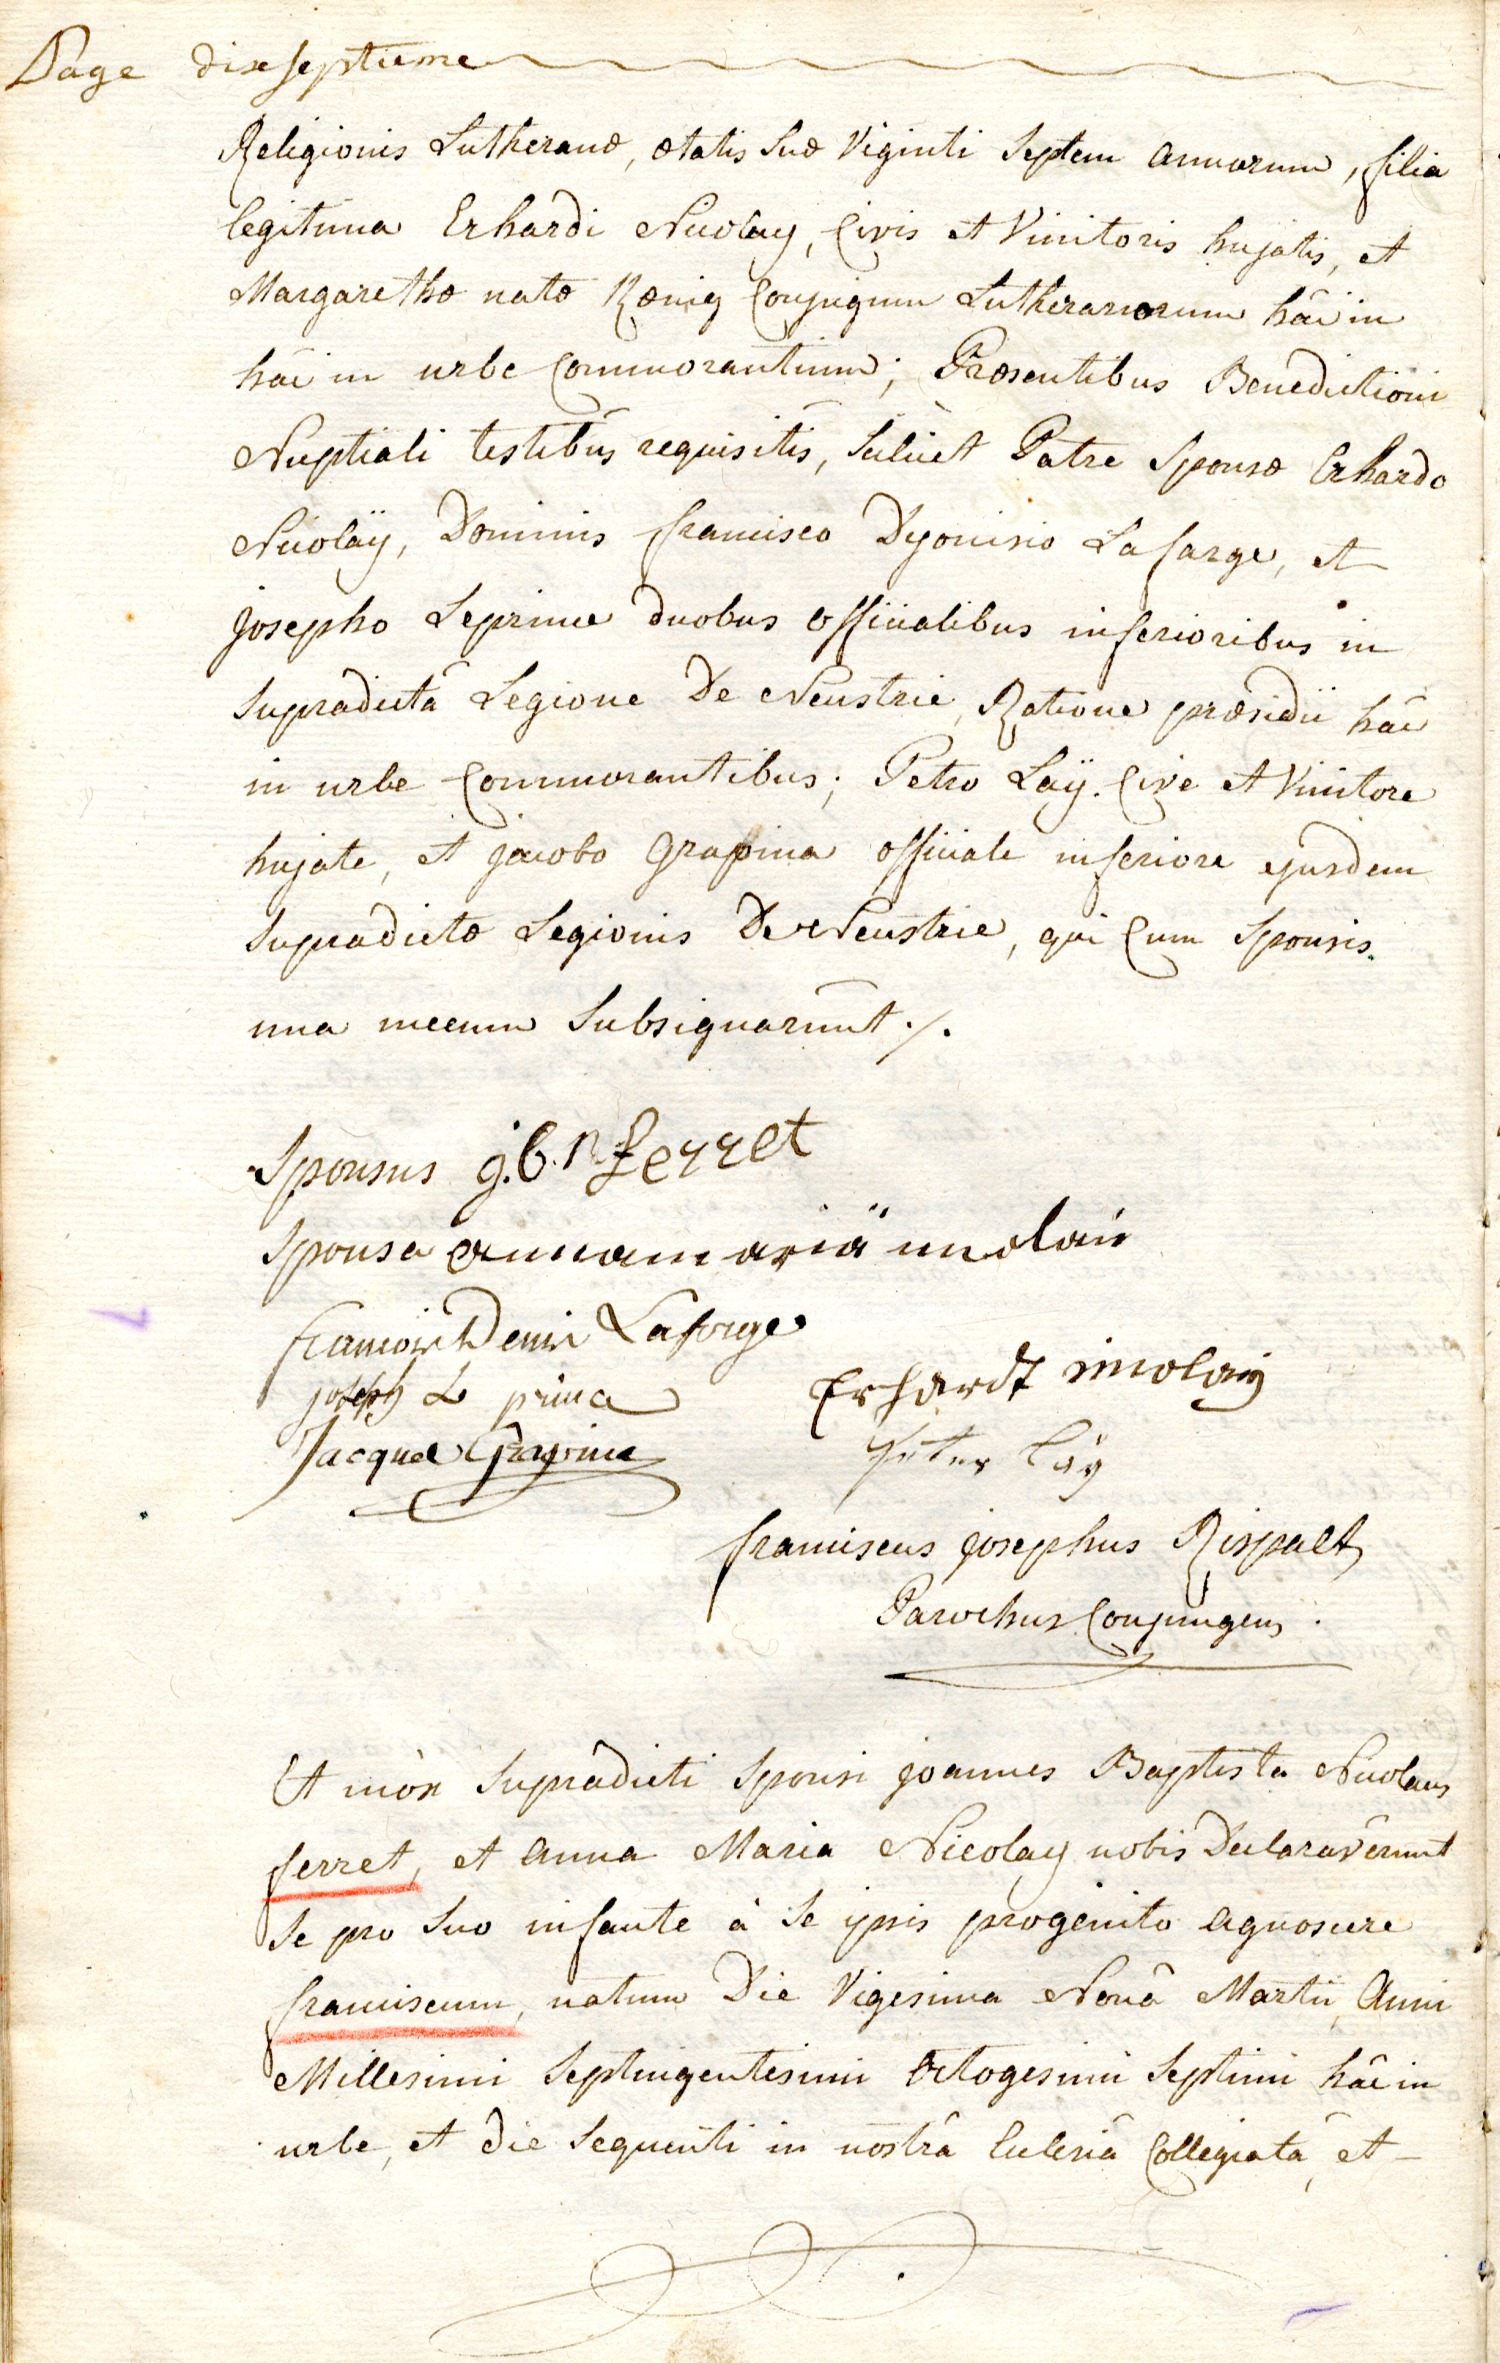 Page dixseptieme
Religionis Lutheranæ, ætatis suæ viginti septem annorum, filia
legitima Erhardi Nicolaÿ, Civis et Vinitoris hujatis, et
Margarethæ natæ Kœnig Conjugum Lutheranorum hâc in
hâc in urbe Commorantium; Præsentibus Benedictioni
Nuptiali testibus requisitis, scilicet Patre Sponsæ Erhardo
Nicolaÿ, Dominis francisco Dyonisio Lafarge, et
josepho Leprince duobus officialibus inferioribus in
supradictâ Legione De Neustrie, Ratione præsidii hâc
in urbe Commorantibus; Petro Laÿ. Cive et Vinitore
hujate, et jacobo Grapina officiale inferiore ejusdem
supradictæ Legionis De Neustrie, qui Cum Sponsis
una mecum subsignarunt ./.
Sponsus j.b.n. ferret
Sponsa annamariä nicolaii
francois Denis Laforge
Erhardt nicolaÿ
joseph Le prince
Peter Laÿ
Jacque Grapine
franciscus josephus Rispalt
Parochus Conjungens.
Et mòx supràdicti Sponsi joannes Baptista Nicolaus
ferret, et anna Maria Nicolaÿ nobis Declaravêrunt
se pro suo infante à se ipsis progenito agnoscere
franciscum, natum Die Vigesima Nonâ Martii, Anni
Millesimi Septingentesimi Octogesimi Septimi hâc in
urbe, et die sequenti in nostrâ Ecclesiâ Collegiatâ, et –